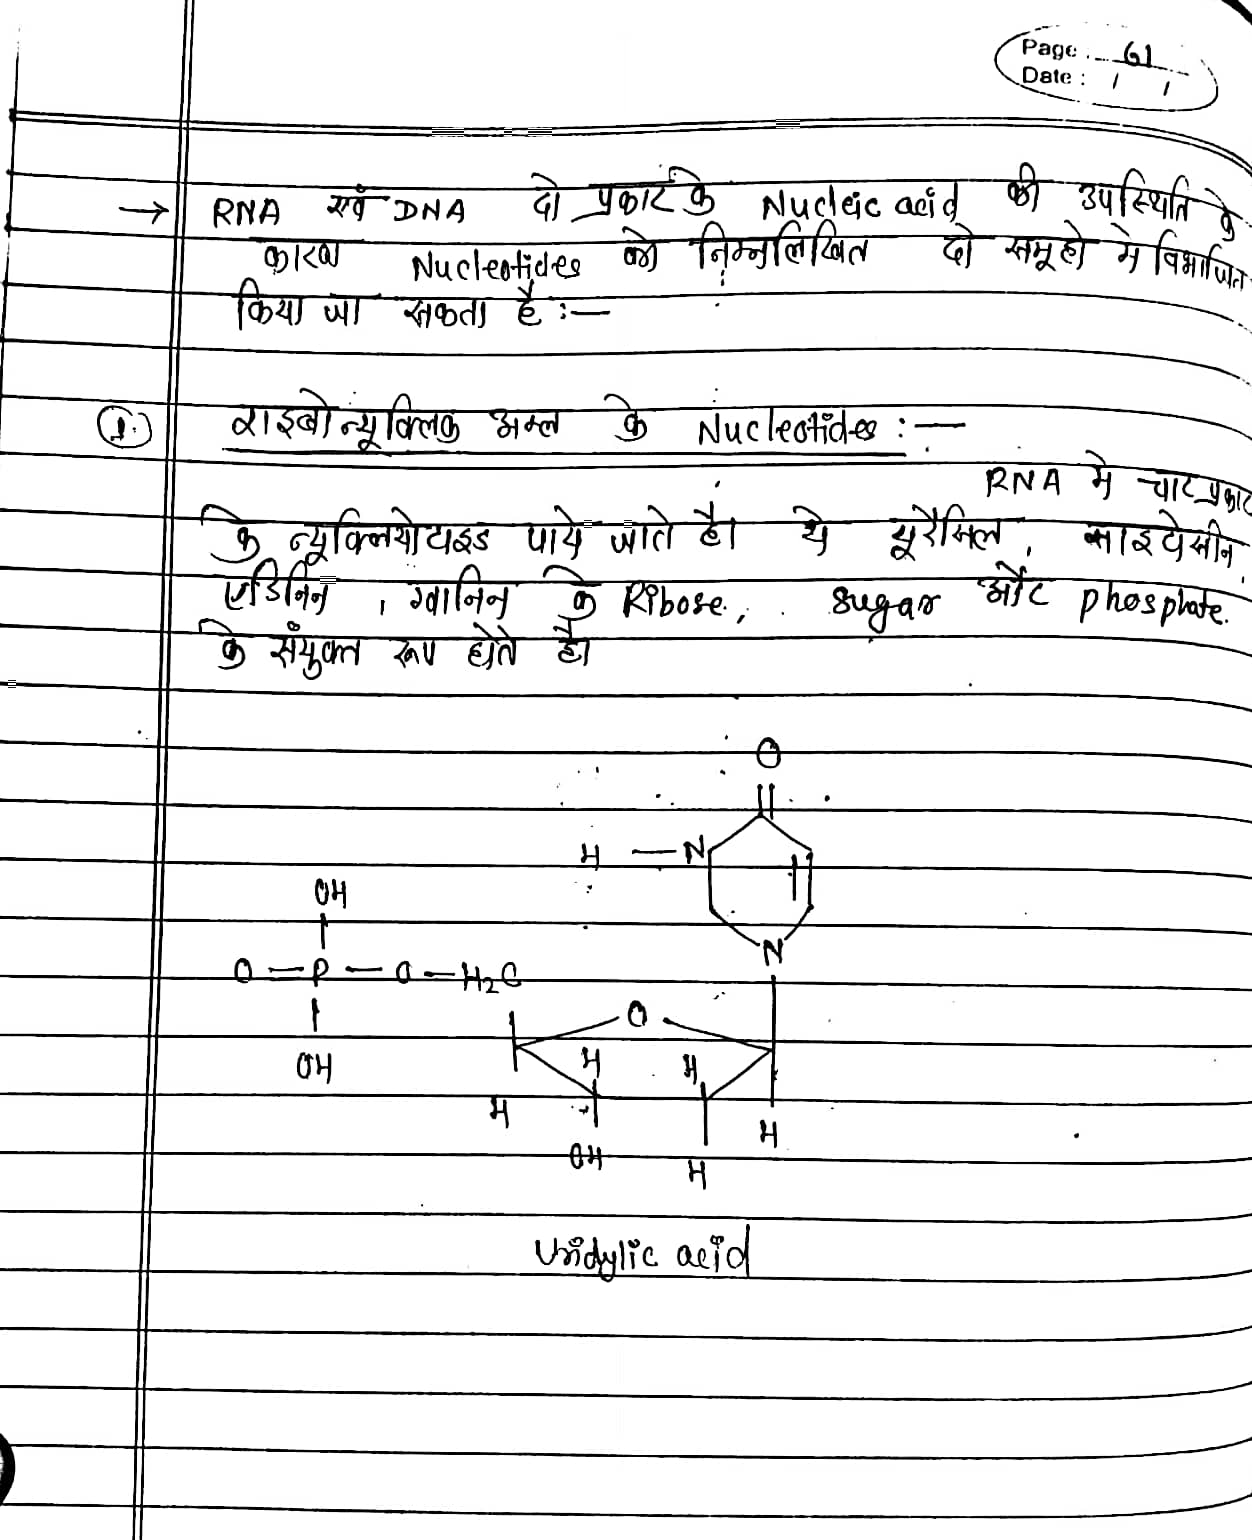 Page : 61
Date : / /
→ RNA एवं DNA दो प्रकार के Nucleic acid की उपस्थिति के
कारण Nucleotides को निम्नलिखित दो समूहो मे विभाजित
किया जा सकता है :—
1. राइबोन्यूक्लिक अम्ल के Nucleotides :—
RNA मे चार प्रकार
के न्यूक्लियोटाइड पाये जाते है। ये यूरैसिल, साइटोसीन,
एडिनिन, ग्वानिन के Ribose, sugar और phosphate.
के संयुक्त रूप होते है।
O
H — N
OH
N
O — P — O — H₂C
O
OH H H
H H
OH H
Uridylic acid